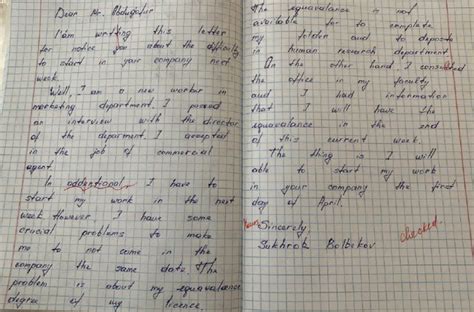 Dear Mr. Abdugafur
I am writing this letter
for notice you about the difficulty
to start in your company next
week.
Well, I am a new worker in
marketing department. I passed
an interview with the director
of the deparment. I accepted
in the job of commercial
agent.
In addentional I have to
start my work in the next
week. However, I have some
crucial problems to make
me to not come in the
company the same date. The
problem is about my equavalance
degree of my licence.
The equavalance is not
available for to complete
my folder and to deposite
in human research department
On the other hand I consulted
the office in my faculty
and I had information
that I will have the
equavalance in the end
of this current week.
The thing is I will
able to start my work
in your company the first
day of April.
Sincerely,
Sukhrob Bolbekov
checked